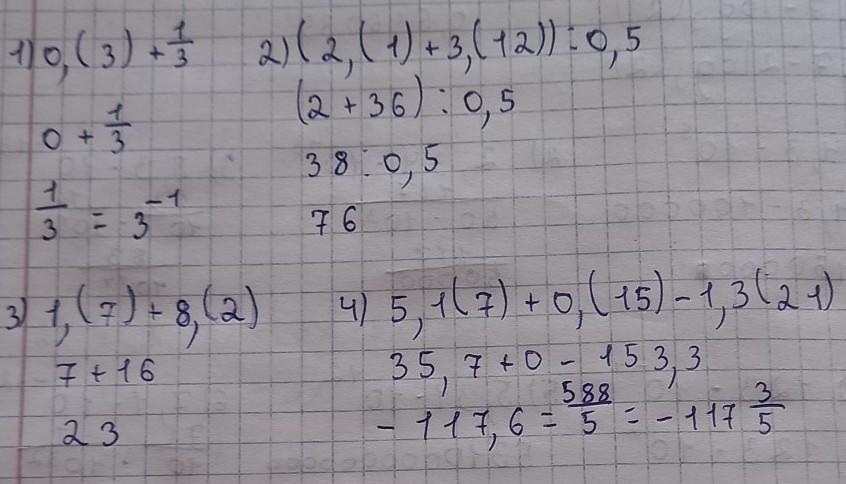 1) 0,(3) + 1/3
0 + 1/3
1/3 = 3^-1
2) (2,(1) + 3,(12)) : 0,5
(2 + 36) : 0,5
38 : 0,5
76
3) 1,(7) + 8,(2)
7 + 16
23
4) 5,1(7) + 0,(15) - 1,3(21)
35,7 + 0 - 153,3
- 117,6 = 588/5 = - 117 3/5